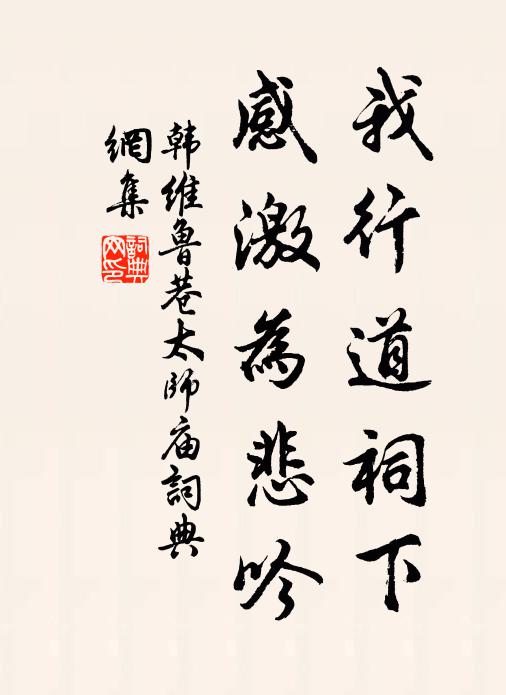 我行道祠下
感激為悲吟
韩维魯巷太师庙詞典
網集
詞典
网印